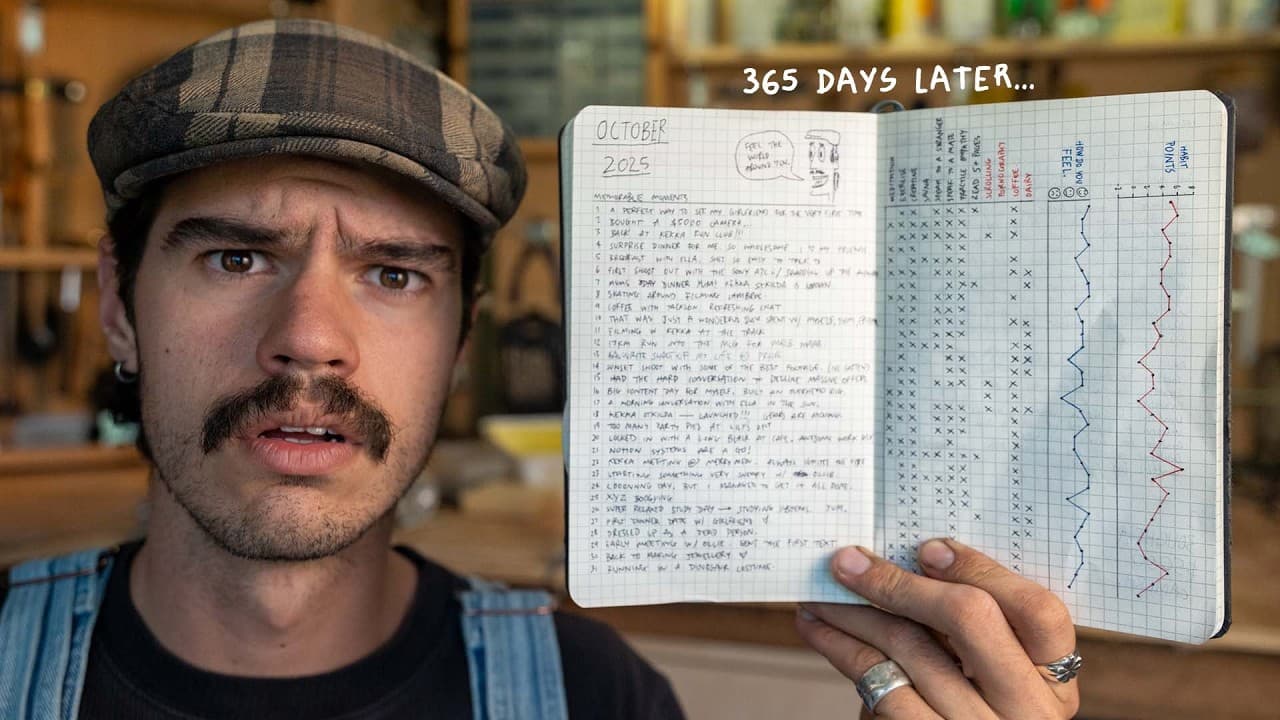 365 DAYS LATER...
OCTOBER
2025
FEEL THE
WORLD
AROUND YOU.
MEMORABLE MOMENTS
1 A PERFECT WAY TO SET MY GIRLFRIEND FOR THE VERY FIRST TIME
2 BOUGHT A $5000 CAMERA...
3 BACK AT KEKKA RUN CLUB!!!
4 SURPRISE DINNER FOR ME. SO WHOLESOME. TO MY FRIENDS
5 BREAKFAST WITH ELLA. SHES SO EASY TO TALK TO
6 FIRST SHOOT OUT WITH THE SONY UP THE
7 MUMS BDAY DINNER MUM! KEKKA STKILDA
8 SKATING AROUND FILMING
9 COFFEE WITH JACKSON. REFRESHING CHAT
10 THAT WAS JUST A WONDERFUL DAY SPENT W/ MYSELF,
11 FILMING W KEKKA AT THE TRACK
12 17KM RUN INTO THE
13 FAVOURITE OF MY LIFE @
14 SUNSET SHOOT WITH SOME OF THE BEST FOOTAGE.
15 HAD THE HARD CONVERSATION + DECLINE MASSIVE OFFERS
16 BIG CONTENT DAY FOR MYSELF. BUILT AN OVERHEAD RIG.
17 A MORNING CONVERSATION WITH ELLA IN THE SUN.
18 KEKKA STKILDA — LAUNCHED!!! GEARS ARE MOVING
19 TOO MANY PARTY PIES AT
20 LOCKED IN WITH A LONG BLACK AT CAFE, AWESOME WORK DAY
21 NOTION SYSTEMS ARE A GO!
22 KEKKA MEETING @ MERRYMEN. ALWAYS IGNITES THE FIRE
23 STARTING SOMETHING VERY SWEATY W/ OLLIE
24 LOOONNNG DAY, BUT I MANAGED TO GET IT ALL DONE.
25 XYZ BOOGYING
26 SUPER RELAXED STUDY DAY → STUDYING
27 FIRST DINNER DATE W/ GIRLFRIEND
28 DRESSED UP AS A DEAD PERSON.
29 EARLY MEETING W/ OLLIE. SENT THE FIRST TEXT
30 BACK TO MAKING JEWELLERY ♥
31 RUNNING IN A DINOSAUR COSTUME.
MEDITATION
EXERCISE
CREATIVE
SAUNA
SPEAK TO A STRANGER
SPEAK TO A MATE
PRACTICE EMPATHY
READ 5+ PAGES
SCROLLING
PORNOGRAPHY
COFFEE
DAIRY
HOW DO YOU
FEEL
HABIT
POINTS